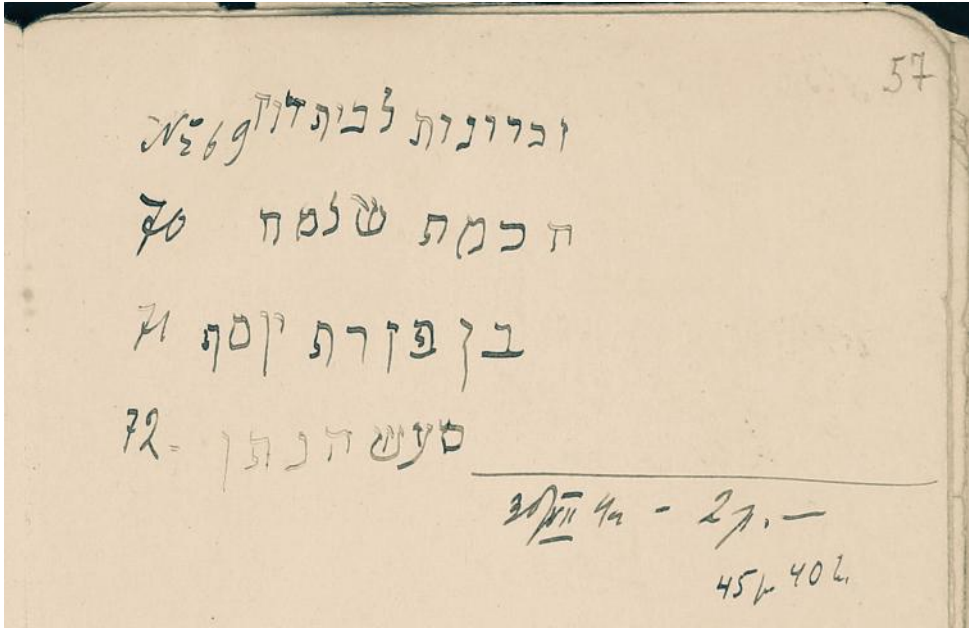 57
זכרונות לבית דוד №69
חכמת שלמה 70
בן פורת יוסף 71
מעשה נתן 72
2р. —
45р 40к.